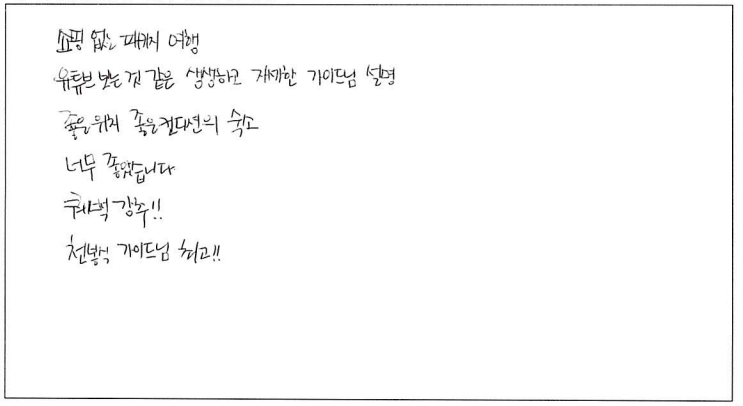 쇼핑 없는 패키지 여행
유튜브 보는 것 같은 생생하고 자세한 가이드님 설명
좋은위치 좋은컨디션의 숙소
너무 좋았습니다
강추!!
가이드님 최고!!